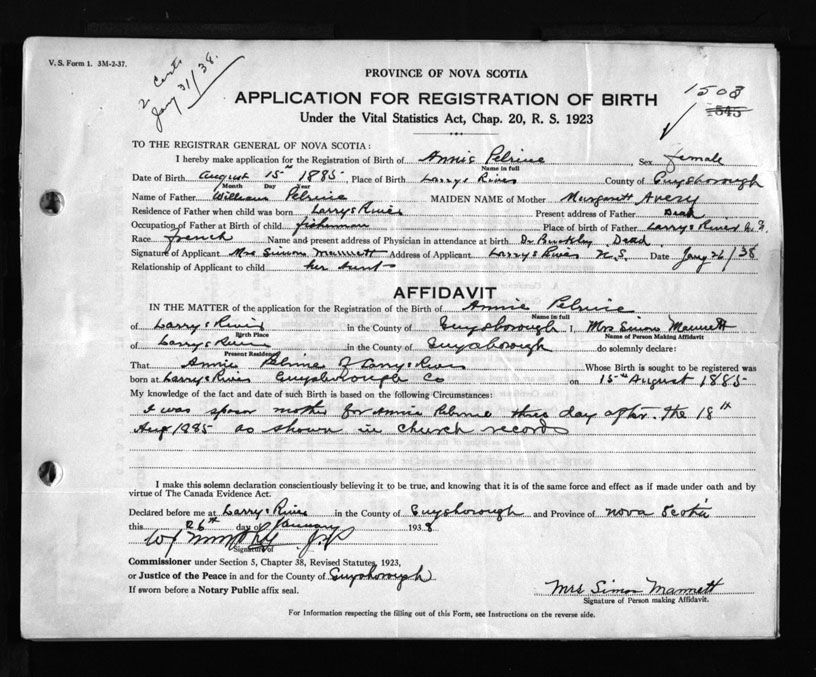 V. S. Form 1. 3M-2-37.
2 Certs
Jany 31/38.
PROVINCE OF NOVA SCOTIA
APPLICATION FOR REGISTRATION OF BIRTH
Under the Vital Statistics Act, Chap. 20, R. S. 1923
1508
345
TO THE REGISTRAR GENERAL OF NOVA SCOTIA:
I hereby make application for the Registration of Birth of Annie Pelrine , Sex female
Name in full
Date of Birth August 15th 1885 , Place of Birth Larrys River County of Guysborough
Month Day Year
Name of Father William Pelrine MAIDEN NAME of Mother Margarett Avery
Residence of Father when child was born Larrys River Present address of Father Dead
Occupation of Father at Birth of child fisherman Place of birth of Father Larrys River N.S.
Race french Name and present address of Physician in attendance at birth Dr Buckley Dead
Signature of Applicant Mrs Simon Mannett Address of Applicant Larrys River N.S. Date Jany 26/38
Relationship of Applicant to child her aunt
AFFIDAVIT
IN THE MATTER of the application for the Registration of the Birth of Annie Pelrine
Name in full
of Larrys River in the County of Guysborough I, Mrs Simon Mannett
Birth Place Name of Person Making Affidavit
of Larrys River in the County of Guysborough do solemnly declare:
Present Residence
That Annie Pelrine of Larrys River Whose Birth is sought to be registered was
born at Larrys River Guysborough Co on 15th August 1885
My knowledge of the fact and date of such Birth is based on the following Circumstances:
I was sponsor mother for Annie Pelrine three day after. the 18th
Aug 1885 as shown in church records
I make this solemn declaration conscientiously believing it to be true, and knowing that it is of the same force and effect as if made under oath and by
virtue of The Canada Evidence Act.
Declared before me at Larrys River in the County of Guysborough and Province of Nova Scotia
this 26th day of January 1938
W J Murphy J.P.
Signature of
Commissioner under Section 5, Chapter 38, Revised Statutes, 1923,
or Justice of the Peace in and for the County of Guysborough
If sworn before a Notary Public affix seal.
Mrs Simon Mannett
Signature of Person making Affidavit.
For Information respecting the filling out of this Form, see Instructions on the reverse side.